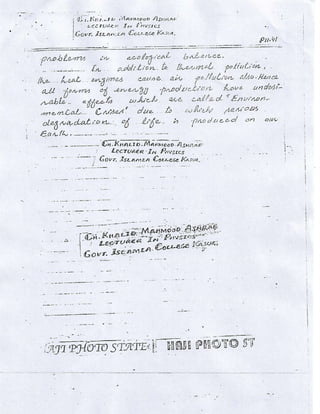 CH. KHALID MAHMOOD ASHRAF
LECTURER IN PHYSICS
GOVT. ISLAMIA COLLEGE KASUR.
P11-41
problems in ecological balance.
In addition to thermal pollution,
the heat engines cause air pollution also. Hence
all forms of energy production have undesi-
rable effects which are called "Environ-
mental Crises" due to which serious
degradation of life is produced on our
Earth.
CH. KHALID MAHMOOD ASHRAF
LECTURER IN PHYSICS
GOVT. ISLAMIA COLLEGE KASUR.
CH. KHALID MAHMOOD ASHRAF
LECTURER IN PHYSICS
GOVT. ISLAMIA COLLEGE KASUR.
AJI PHOTO STATE
HAJI PHOTO ST